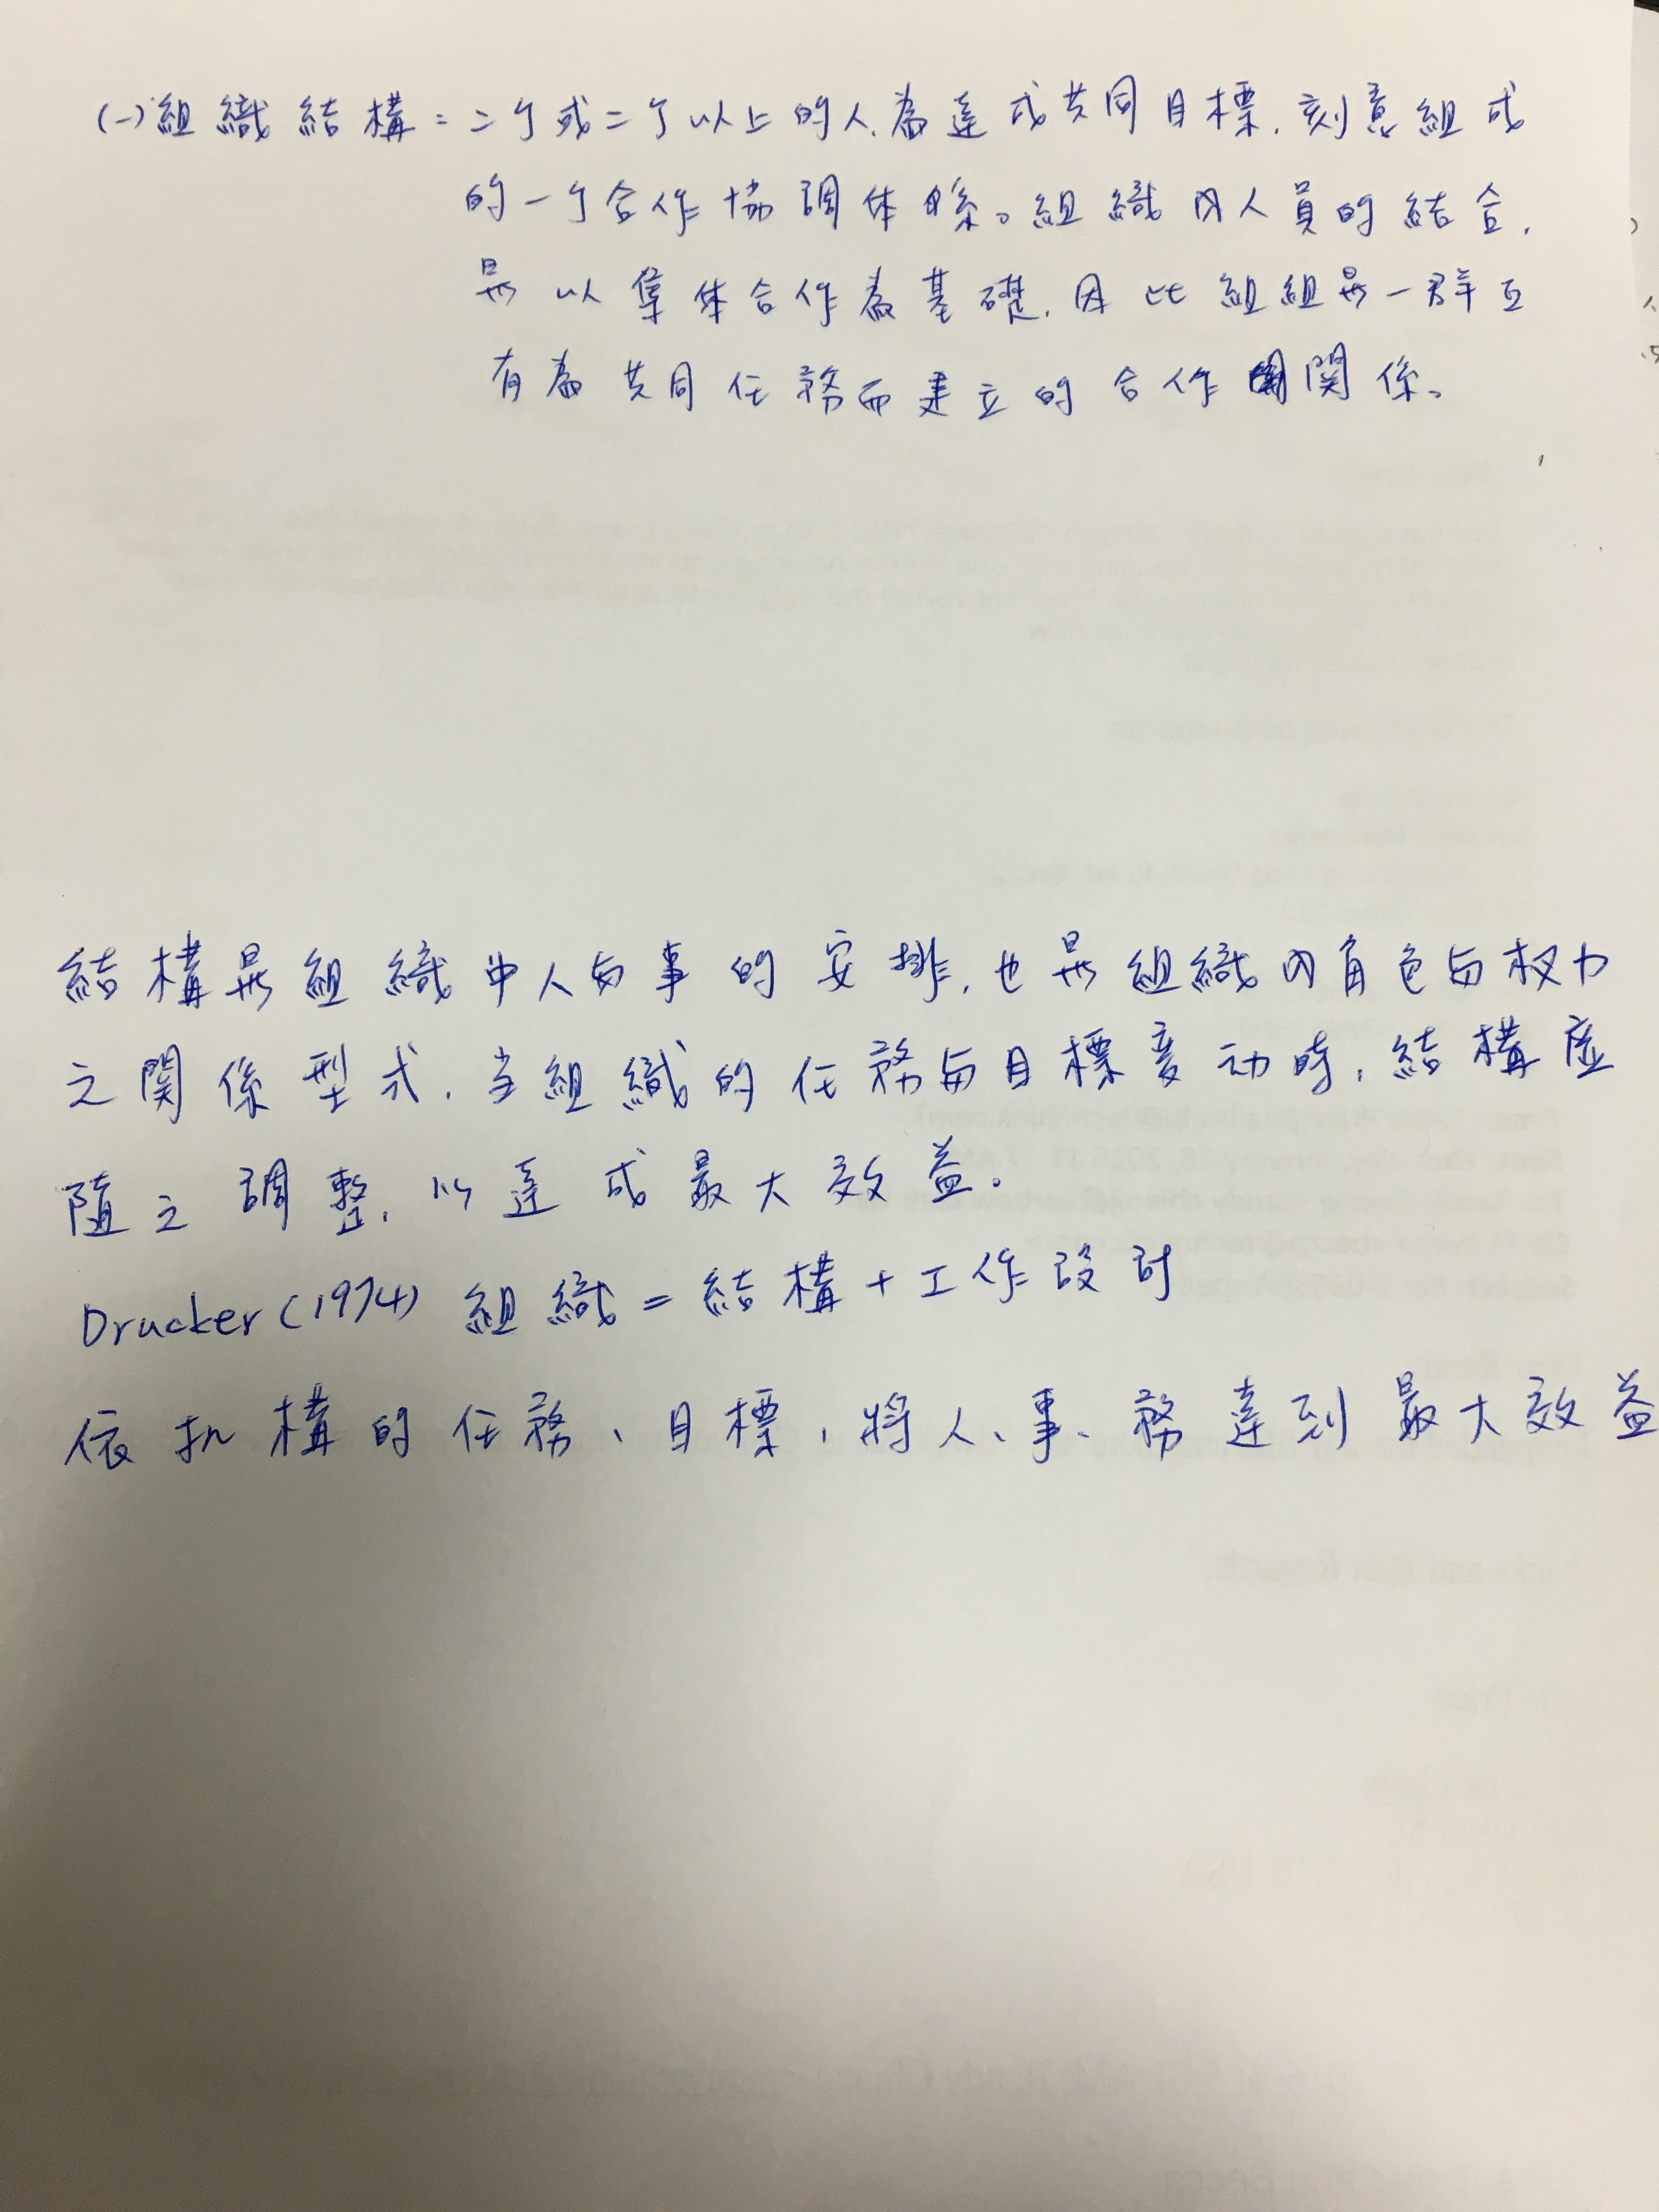 (一)組織結構=二个或二个以上的人,為達成共同目標,刻意組成
的一个合作協調体係。組織內人員的結合,
是以集体合作為基礎,因此組組是一群互
有為共同任務而建立的合作關係。
結構是組織中人与事的安排,也是組織內角色与权力
之関係型式,当組織的任務与目標变动時,結構應
隨之調整,以達成最大效益。
Drucker(1974) 組織=結構+工作設計
依机構的任務、目標,將人、事、務達到最大效益